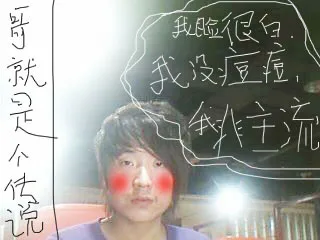 哥就是个传说
我脸很白.
我没痘痘,
我非主流